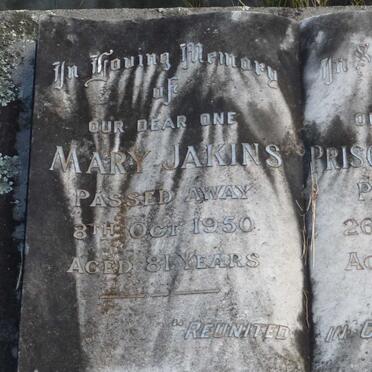 In Loving Memory
of
OUR DEAR ONE
MARY JAKINS
PASSED AWAY
8TH OCT 1950
AGED 81 YEARS
"REUNITED
In
PRISC
26
IN